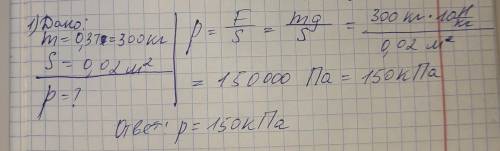 1) Дано:
m = 0,3т = 300кг
S = 0,02 м²
p = ?
p = F/S = mg/S = 300 кг · 10 Н/кг / 0,02 м²
= 150000 Па = 150кПа
Ответ: p = 150кПа